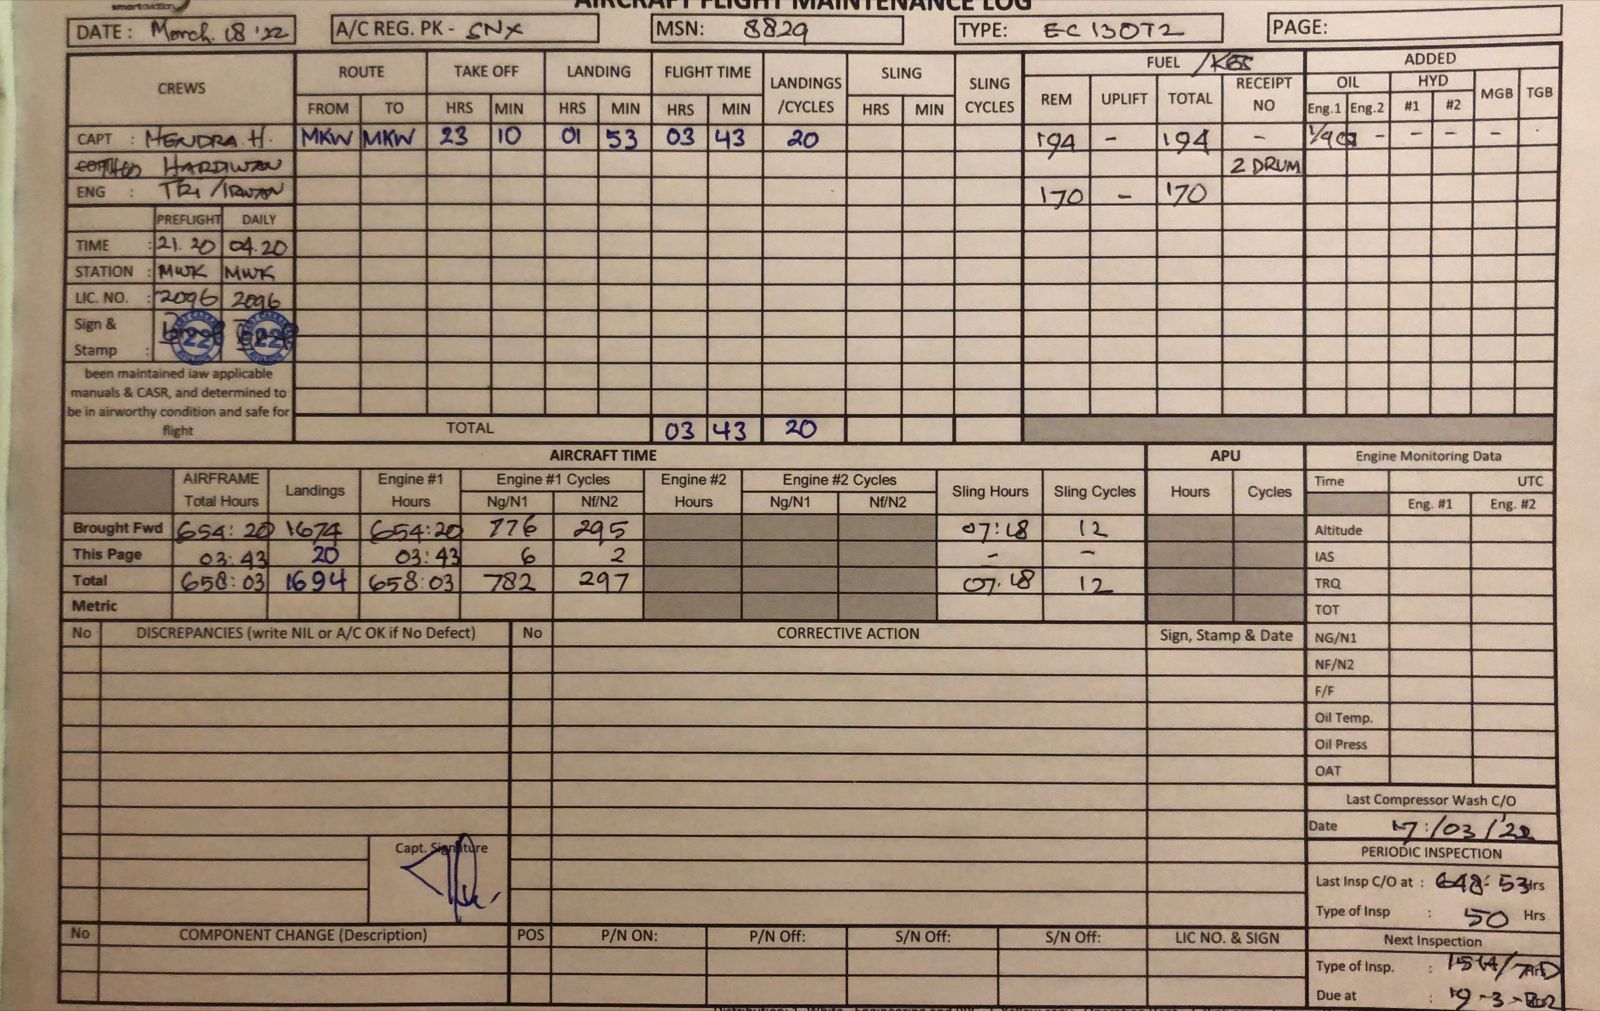 smartaviation
AIRCRAFT FLIGHT MAINTENANCE LOG
DATE : March. 18 '22 A/C REG. PK - SNX MSN: 8829 TYPE: EC 130T2 PAGE:
CREWS ROUTE TAKE OFF LANDING FLIGHT TIME LANDINGS /CYCLES SLING SLING CYCLES FUEL /KGS ADDED
REM UPLIFT TOTAL RECEIPT NO OIL HYD MGB TGB
FROM TO HRS MIN HRS MIN HRS MIN HRS MIN Eng.1 Eng.2 #1 #2
CAPT : HENDRA H. MKW MKW 23 10 01 53 03 43 20 194 - 194 - - - - -
HARDIWAN 2 DRUM
ENG : TRI /IRWAN 170 - 170
PREFLIGHT DAILY
TIME : 21. 20 04.20
STATION : MWK MWK
LIC. NO. : 2096 2096
Sign &
Stamp :
been maintained iaw applicable
manuals & CASR, and determined to
be in airworthy condition and safe for
flight
TOTAL 03 43 20
AIRCRAFT TIME APU Engine Monitoring Data
AIRFRAME Total Hours Landings Engine #1 Hours Engine #1 Cycles Engine #2 Hours Engine #2 Cycles Sling Hours Sling Cycles Hours Cycles Time UTC
Ng/N1 Nf/N2 Ng/N1 Nf/N2 Eng. #1 Eng. #2
Brought Fwd 654: 20 1674 654:20 776 295 07:18 12 Altitude
This Page 03:43 20 03:43 6 2 - - IAS
Total 658:03 1694 658:03 782 297 07.18 12 TRQ
Metric TOT
No DISCREPANCIES (write NIL or A/C OK if No Defect) No CORRECTIVE ACTION Sign, Stamp & Date NG/N1
NF/N2
F/F
Oil Temp.
Oil Press
OAT
Last Compressor Wash C/O
Date 17/03/'22
Capt. Signature
PERIODIC INSPECTION
Last Insp C/O at : 648: 53 Hrs
Type of Insp : 50 Hrs
No COMPONENT CHANGE (Description) POS P/N ON: P/N Off: S/N Off: S/N Off: LIC NO. & SIGN
Next Inspection
Type of Insp. :
Due at :